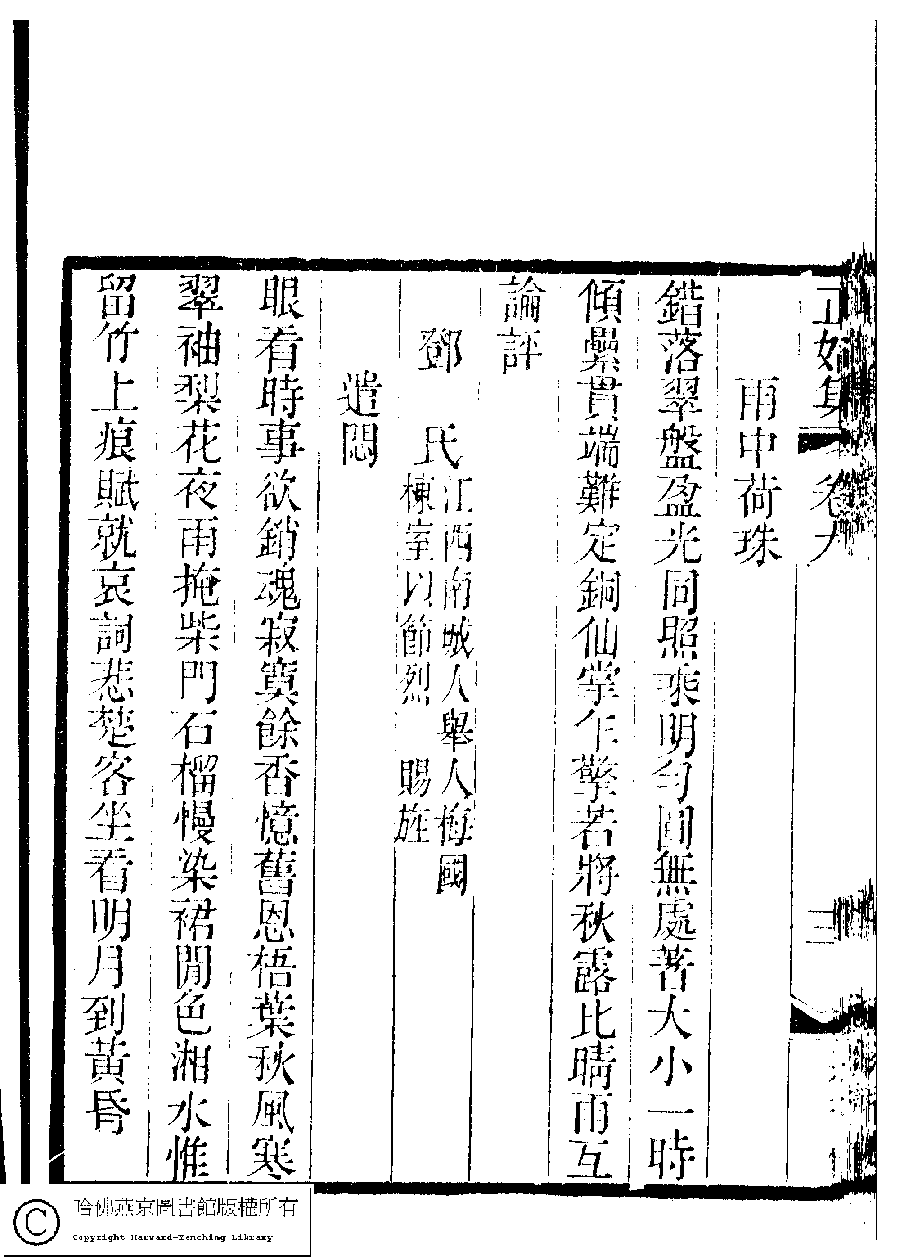 正始集 卷九
三
雨中荷珠
錯落翠盤盈光同照乘明勻圓無處著大小一時
傾纍貫端難定銅仙掌乍擎若將秋露比晴雨互
論評
鄧 氏 江西南城人舉人梅國
棟室以節烈 賜旌
遣悶
眼看時事欲銷魂寂寞餘香憶舊恩梧葉秋風寒
翠袖梨花夜雨掩柴門石榴慢染裙閒色湘水惟
留竹上痕賦就哀詞悲楚客坐看明月到黃昏
哈佛燕京圖書館版權所有
Copyright Harvard-Yenching Library